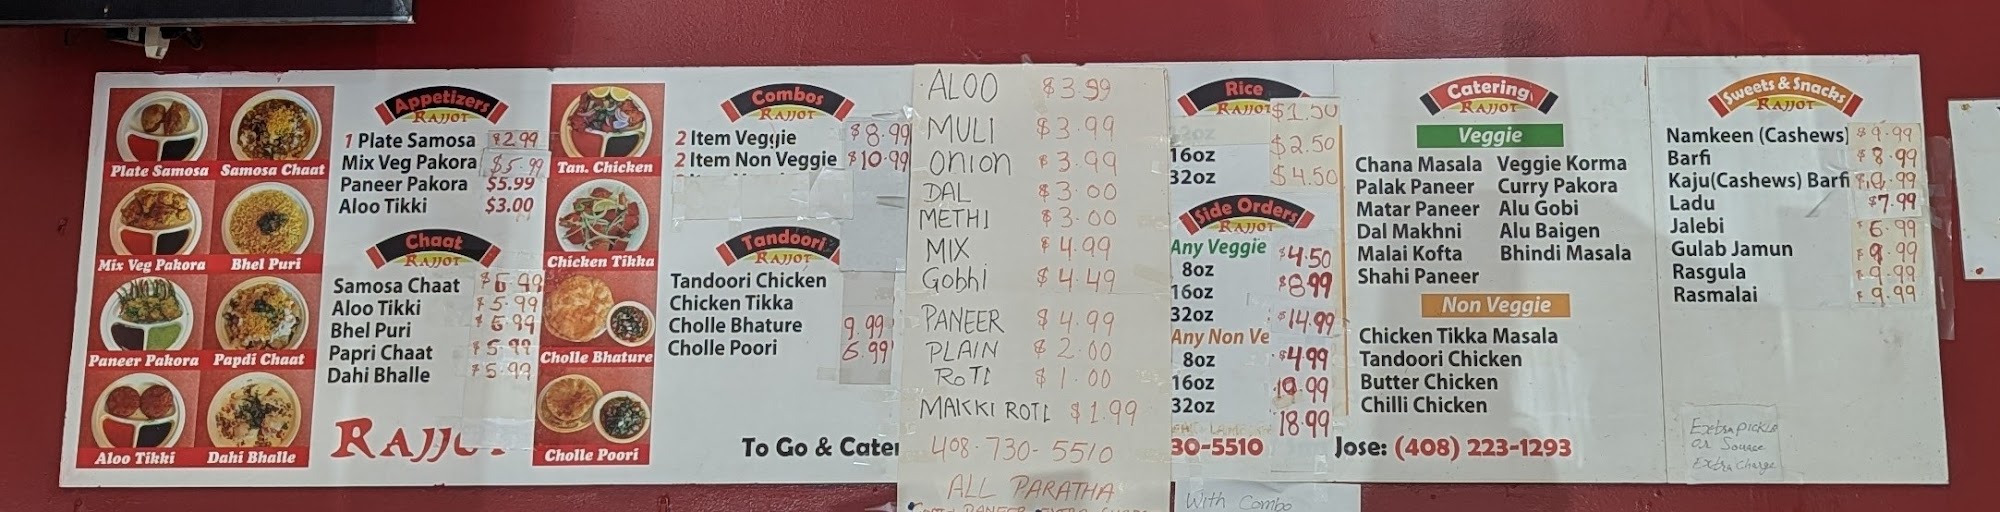 Plate Samosa
Samosa Chaat
Mix Veg Pakora
Bhel Puri
Paneer Pakora
Papdi Chaat
Aloo Tikki
Dahi Bhalle
Appetizers
RAJJOT
1 Plate Samosa $2.99
Mix Veg Pakora $5.99
Paneer Pakora $5.99
Aloo Tikki $3.00
Chaat
RAJJOT
Samosa Chaat $6.99
Aloo Tikki $5.99
Bhel Puri $6.99
Papri Chaat $5.99
Dahi Bhalle $5.99
Tan. Chicken
Chicken Tikka
Cholle Bhature
Cholle Poori
Combos
RAJJOT
2 Item Veggie $8.99
2 Item Non Veggie $10.99
Tandoori
RAJJOT
Tandoori Chicken
Chicken Tikka
Cholle Bhature 9.99
Cholle Poori 6.99
To Go & Cater
ALOO $3.99
MULI $3.99
ONION $3.99
DAL $3.00
METHI $3.00
MIX $4.99
Gobhi $4.49
PANEER $4.99
PLAIN $2.00
ROTI $1.00
MAKKI ROTI $1.99
408-730-5510
ALL PARATHA
Rice
RAJJOT
$1.50
16oz $2.50
32oz $4.50
Side Orders
RAJJOT
Any Veggie
8oz $4.50
16oz $8.99
32oz $14.99
Any Non Ve
8oz $4.99
16oz
32oz 18.99
30-5510
With Combo
Catering
RAJJOT
Veggie
Chana Masala Veggie Korma
Palak Paneer Curry Pakora
Matar Paneer Alu Gobi
Dal Makhni Alu Baigen
Malai Kofta Bhindi Masala
Shahi Paneer
Non Veggie
Chicken Tikka Masala
Tandoori Chicken
Butter Chicken
Chilli Chicken
Jose: (408) 223-1293
Sweets & Snacks
RAJJOT
Namkeen (Cashews) $9.99
Barfi $8.99
Kaju(Cashews) Barfi
Ladu $7.99
Jalebi $6.99
Gulab Jamun $9.99
Rasgula $9.99
Rasmalai $9.99
Extra pickle
or Sauace
Extra Charge